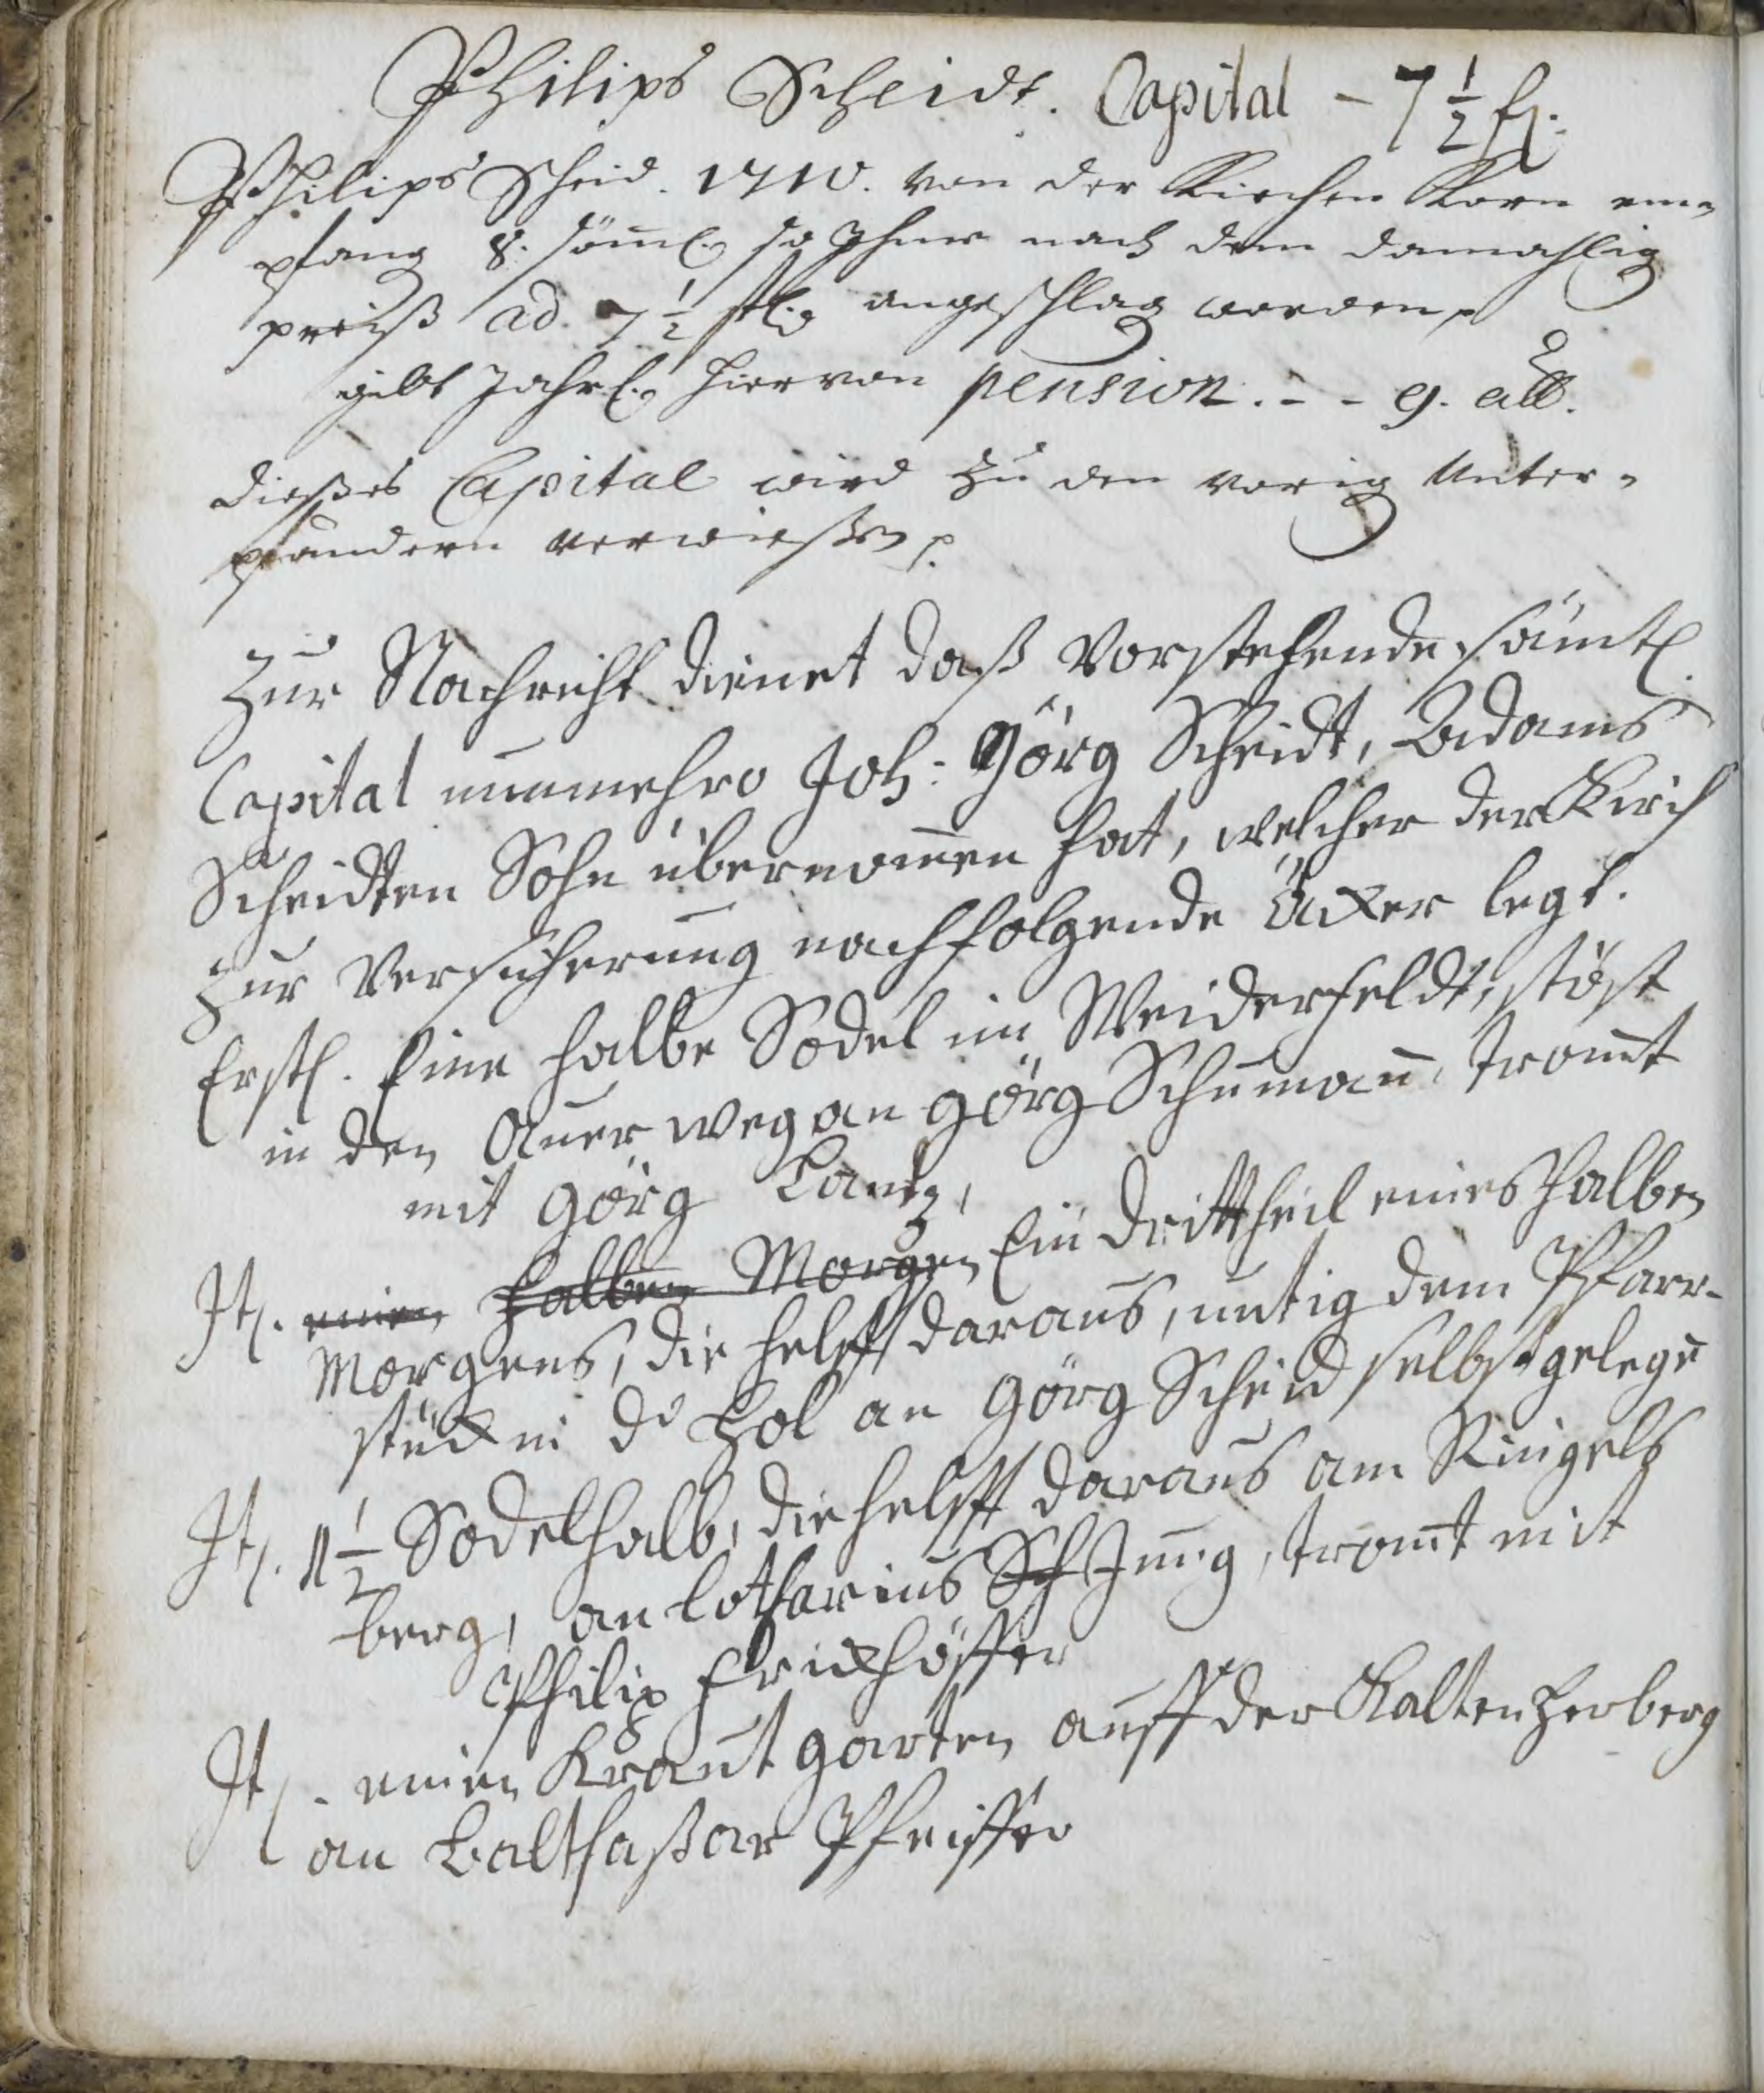 Philips Scheidt. Capital - 7 1/2 fl.
Philips Scheid. 1710. von der Kirchen Korn em-
pfang 8. sömer so Ihme nach dem damahlig
preiß ad. 7 1/2 fl. angeschlag worden,
gibt Jahrl. hiervon pension. - - 9. alb.
dießes Capital wird zu den vorig Unter-
pfandern verwießen.
Zur Nachricht dienet daß vorstehende sämtl.
Capital nunmehro Joh: Görg Scheidt, Adams
Scheidten Sohn übernom̄en hat, welcher der Kirch
zur Versicherung nachfolgende Äcker legt.
Erstl. Eine halbe Sodel im Weiderfeldt, stöst
in den Auer weg an Görg Schumañ, tromt
mit Görg Lantz,
It. einen halben Morgen Ein drittheil eines halben
Morgens, die helfft daraus, untig dem Pfarr-
stück in d Hol an Görg Scheid selbst gelegē
It. 1 1/2 Sodelhalb, die helfft daraus am Ringels
berg, an Lotharius Sch Jung, tromt mit
Philip Frickhöffer
It. einen Kraut garten auff der Kalten herberg
an Balthaßar Pfeiffer